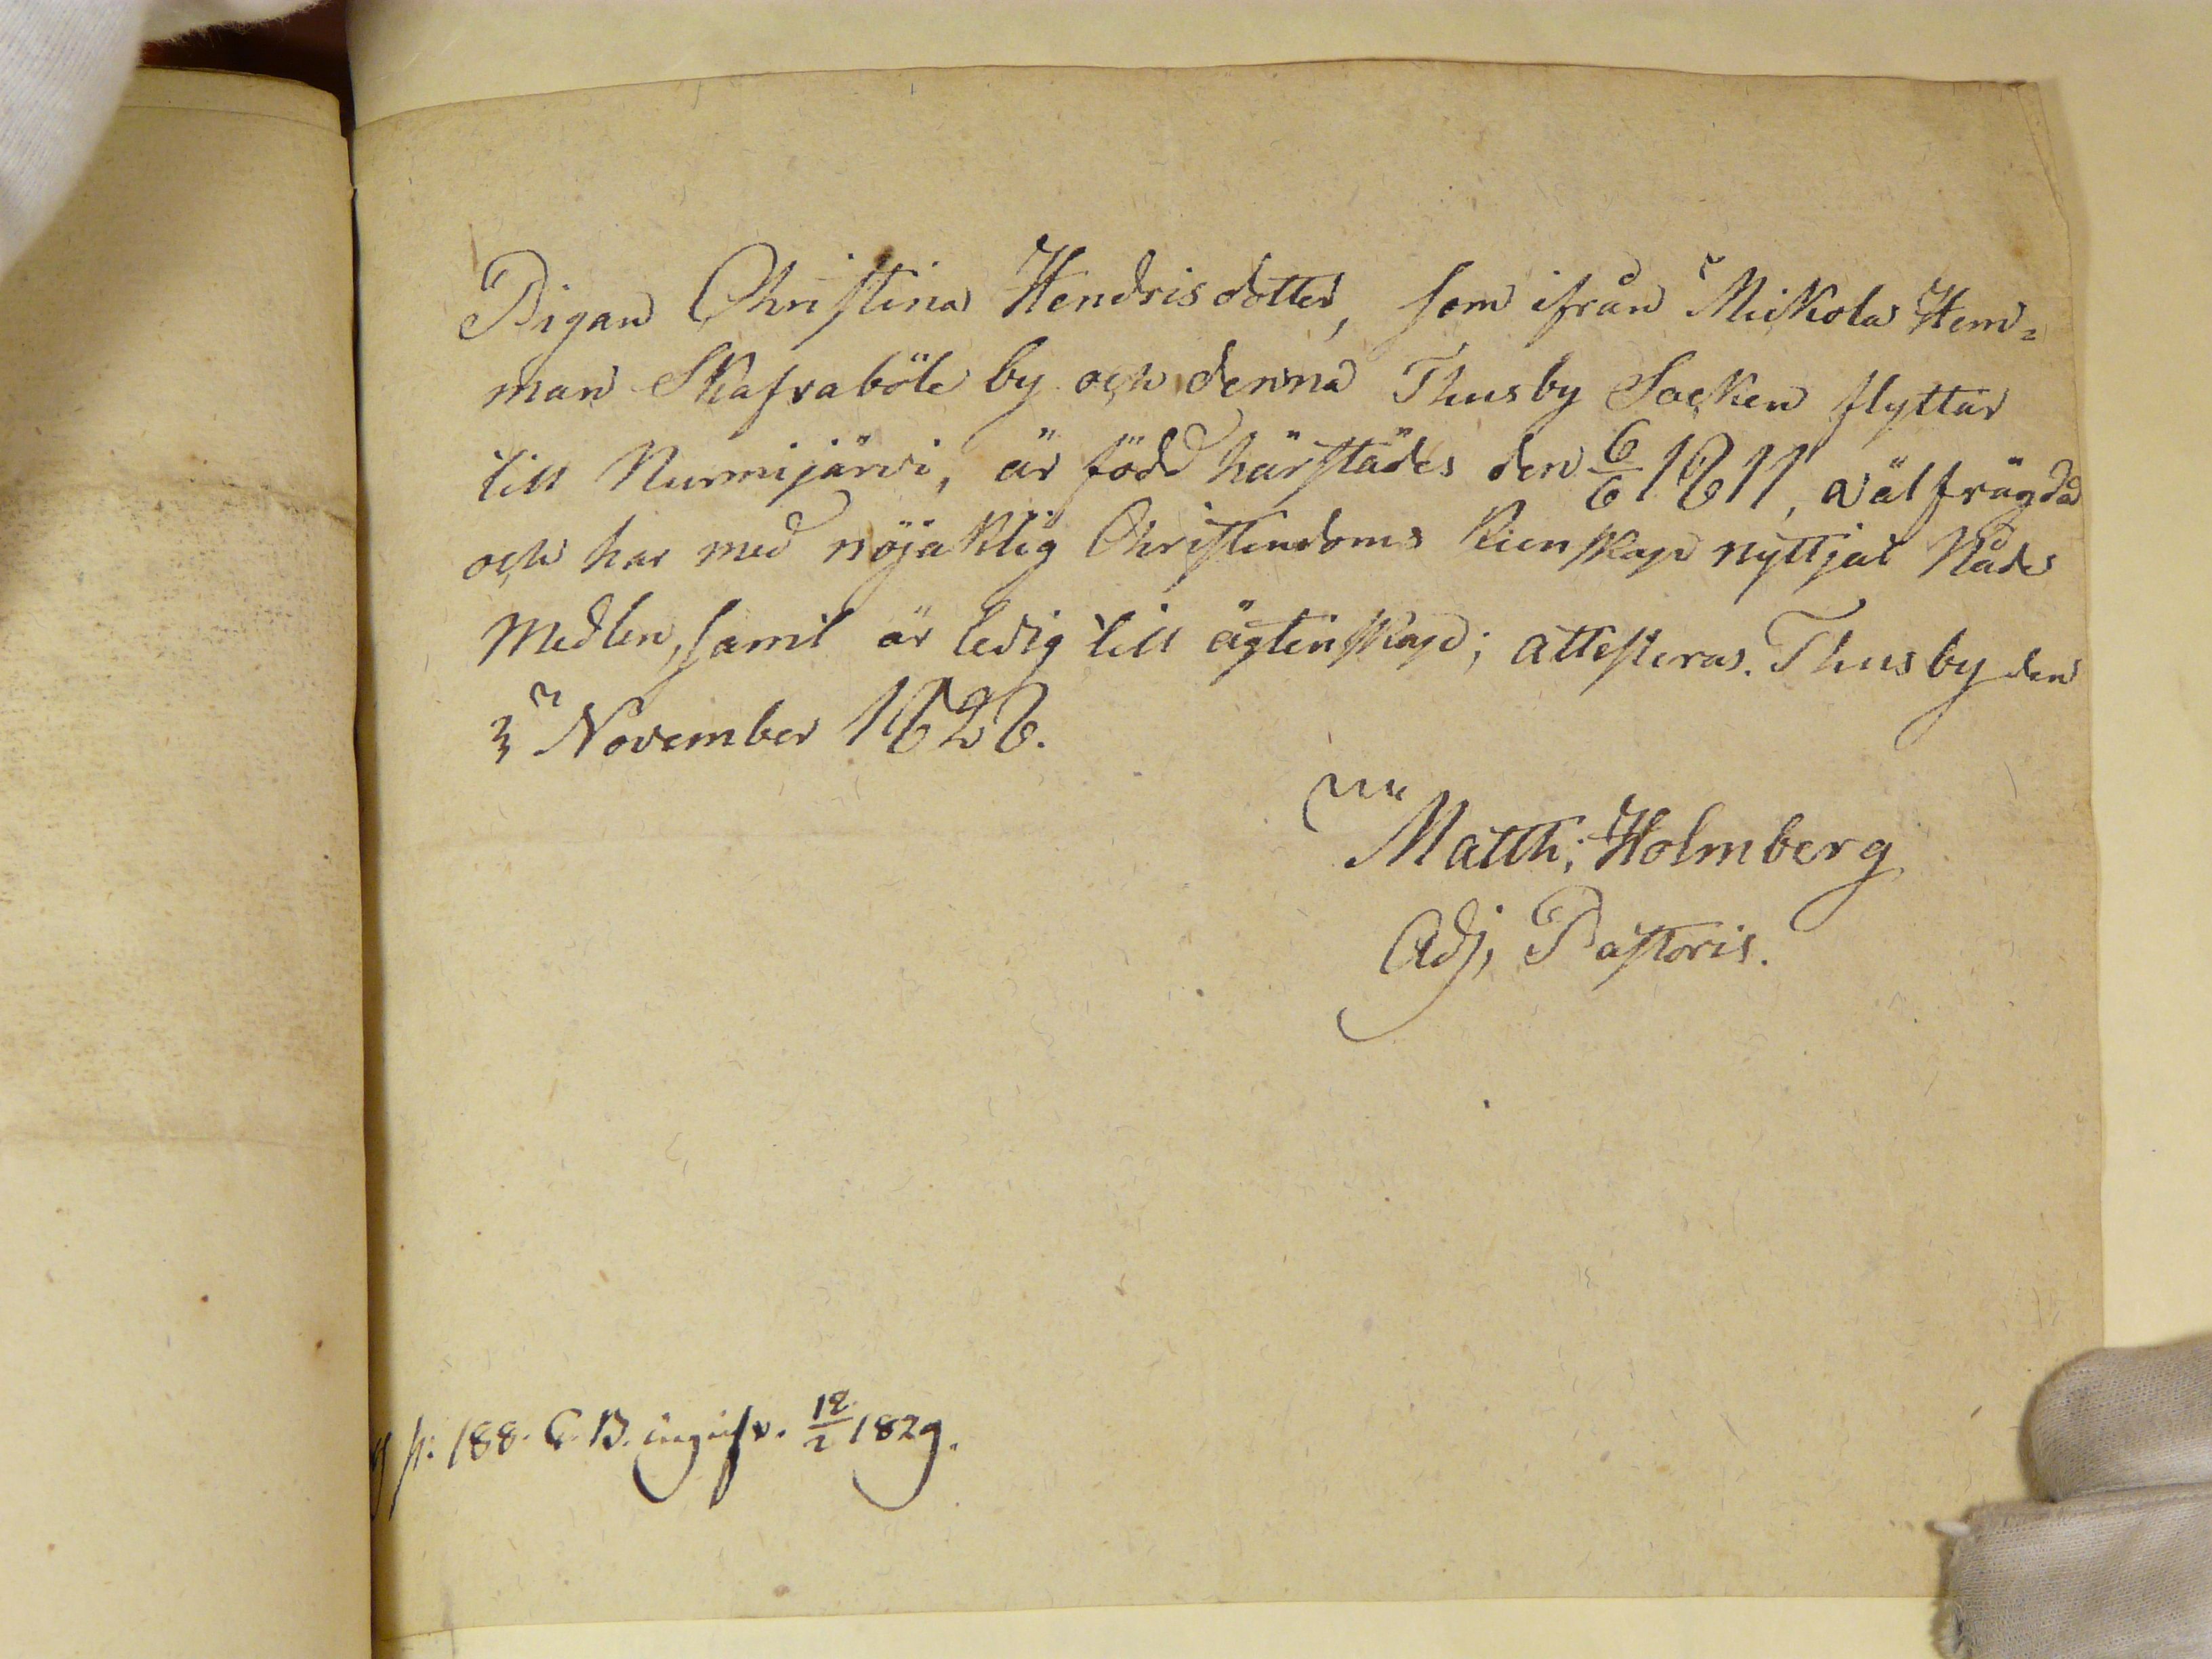 Pigan Christina Hendrisdotter, som ifrån Mikkola Hem=
man Skafraböle by och denna Thusby Socken flyttar
till Nurmijärvi, är född härstädes den 6/6 1811, välfrägdad
och har med nöjaktig Christendoms kienskap nyttjat Nåde
Medlen, samt är ledig till ägtenskap; attesteras. Thusby den
3 November 1828.
Matth: Holmberg
Adj, Pastoris.
p: 188. C. B. ingifv. 12/2 1829.